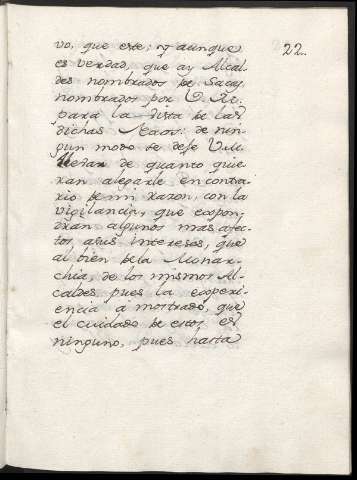 22.
vo, que este; y aunque
es verdad, que ay Alcal-
des nombrados de Sacas,
nombrados por V. M.
para la vista de las
dichas Naos: de nin-
gun modo se deje V. M.
llevar de quanto quie-
ran alegarle en contra-
rio de mi razon, con la
vigilancia, que expon-
dran algunos mas afec-
tos a sus intereses, que
al bien de la Monar-
chia, de los mismos Al-
caldes, pues la experi-
encia a mostrado, que
el cuidado de estos es
ninguno, pues hasta